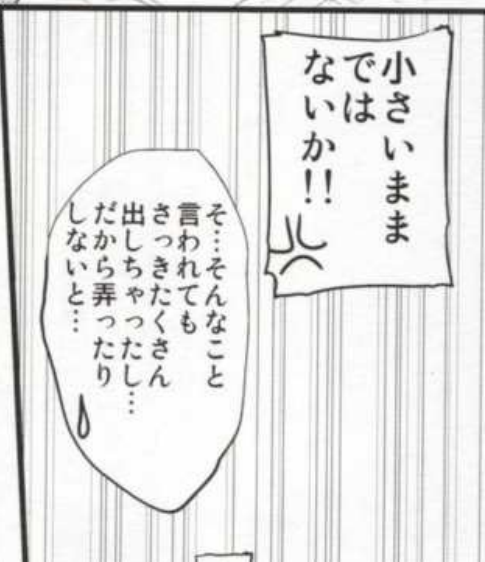 小さいまま
では
ないか!!
そ…そんなこと
言われても
さっきたくさん
出しちゃったし…
だから弄ったり
しないと…